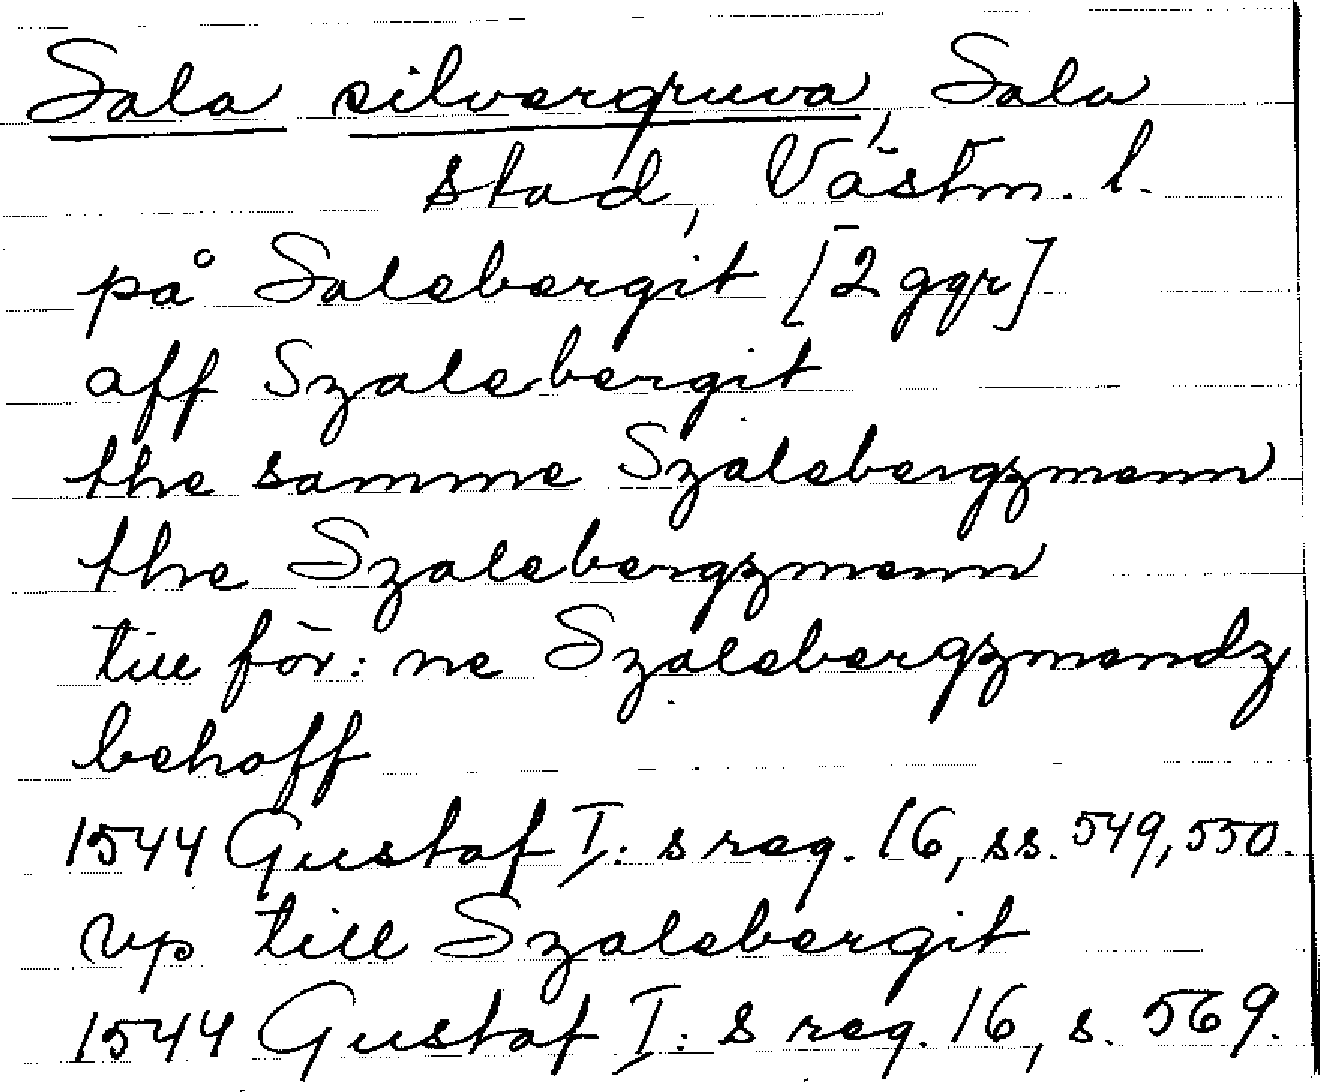 Sala silvergruva, Sala
stad, Västm. l.
på Salebergit [2 ggr]
aff Szalebergit
the samme Szalebergzmenn
the Szalebergzmenn
till för: ne Szalebergzmendz
behoff
1544 Gustaf I: s reg. 16, ss. 549, 550.
vp till Szalebergit
1544 Gustaf I: s reg. 16, s. 569.